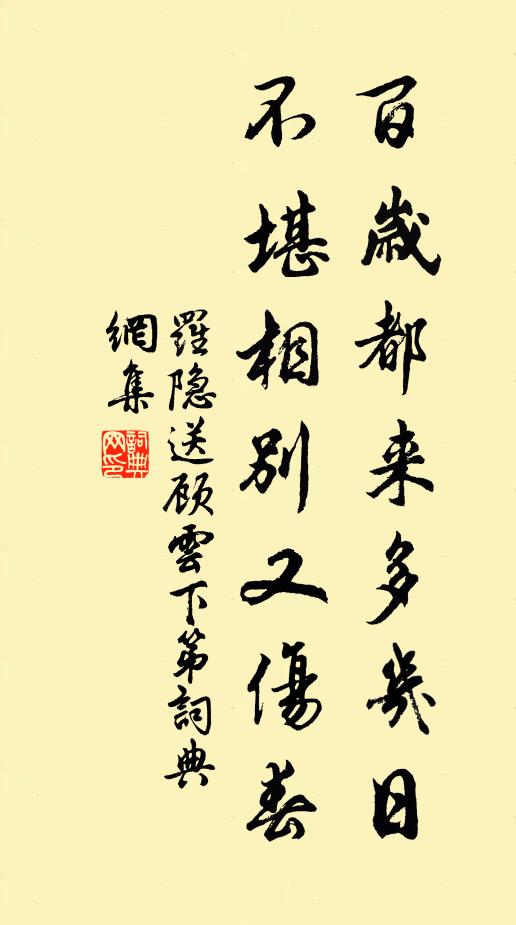 百歲都来多幾日
不堪相别又傷春
羅隐送顾雲下第詞典
網集
詞典
网印